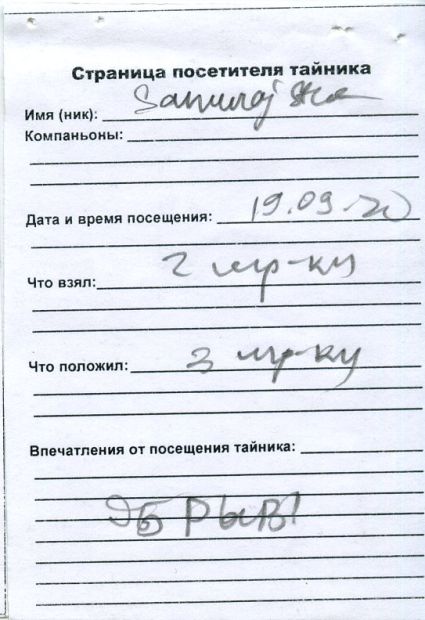 Страница посетителя тайника
Имя (ник): Samuraj
Компаньоны:
Дата и время посещения: 19.09.20
Что взял: 2 игр-ки
Что положил: 3 игр-ку
Впечатления от посещения тайника: